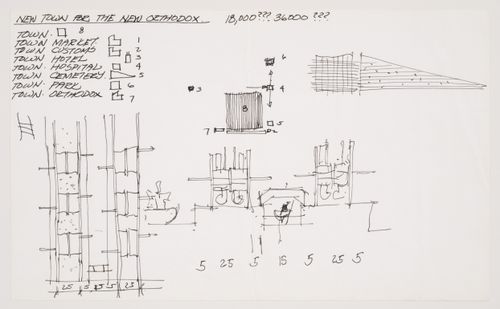 NEW TOWN FOR THE NEW ORTHODOX. 18,000??? 36000???
TOWN. 8
TOWN MARKET. 1
TOWN CUSTOMS 2
TOWN HOTEL 3
TOWN HOSPITAL 4
TOWN CEMETERY 5
TOWN PARK 6
TOWN ORTHODOX 7
6
3
4
8
5
7
2
5 25 5 15 5 25 5
25 5 15 5 25